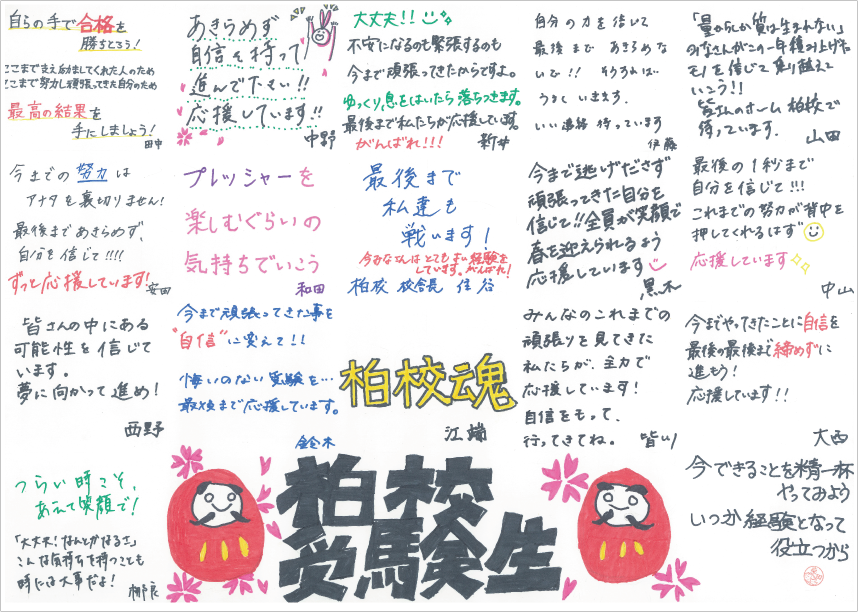 自らの手で合格を
勝ちとろう!
ここまで支え励ましてくれた人のため
ここまで努力し頑張ってきた自分のため
最高の結果を
手にしましょう!
田中
あきらめず
自信を持って
進んで下さい!!
応援しています!!
中野
大丈夫!!
不安になるのも緊張するのも
今まで頑張ってきたからですよ。
ゆっくり、息をはいたら落ちつきます。
最後まで私たちが応援しています。
がんばれ!!!
新井
自分の力を信じて
最後まで あきらめな
いで!! そうすれば…
うまく いきます。
いい連絡 待っています
伊藤
「量からしか質は生まれない」
みなさんがこの一年積み上げた
モノを信じて乗り越えて
いこう!!
皆さんのホーム 柏校で
待っています.
山田
今までの努力は
アナタを裏切りません!
最後まであきらめず、
自分を信じて!!!!
ずっと応援しています!
安田
プレッシャーを
楽しむぐらいの
気持ちでいこう
和田
最後まで
私達も
戦います!
今みなさんはとてもよい経験を
しています。がんばれ!
柏校 校舎長 住谷
今まで逃げださず
頑張ってきた自分を
信じて!!全員が笑顔で
春を迎えられるよう
応援しています
黒木
最後の1秒まで
自分を信じて!!!
これまでの努力が背中を
押してくれるはず
応援しています
中山
皆さんの中にある
可能性を信じて
います。
夢に向かって進め!
西野
今まで頑張ってきた事を
"自信"に変えて!!
悔いのない受験を…
最後まで応援しています。
鈴木
柏校魂
江端
みんなのこれまでの
頑張りを見てきた
私たちが、全力で
応援しています!
自信をもって、
行ってきてね。
皆川
今までやってきたことに自信を
最後の最後まで諦めずに
進もう!
応援しています!!
大西
つらい時こそ、
あえて笑顔で!
「大丈夫!なんとかなるさ」
こんな気持ちを持つことも
時には大事だよ!
柳良
柏校
受験生
今できることを精一杯
やってみよう
いつか経験となって
役立つから